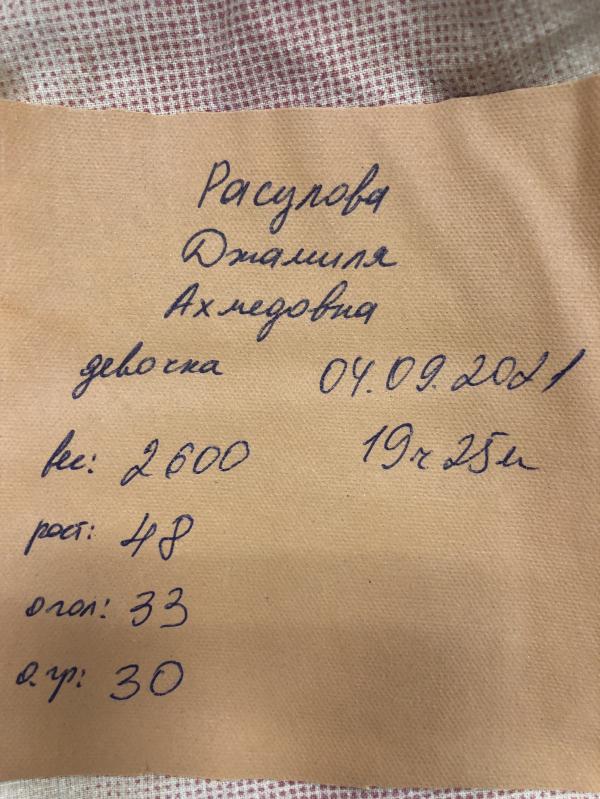 Расулова
Джамиля
Ахмедовна
девочка 04.09.2021
вес: 2600 19ч 25м
рост: 48
о гол: 33
о.гр: 30